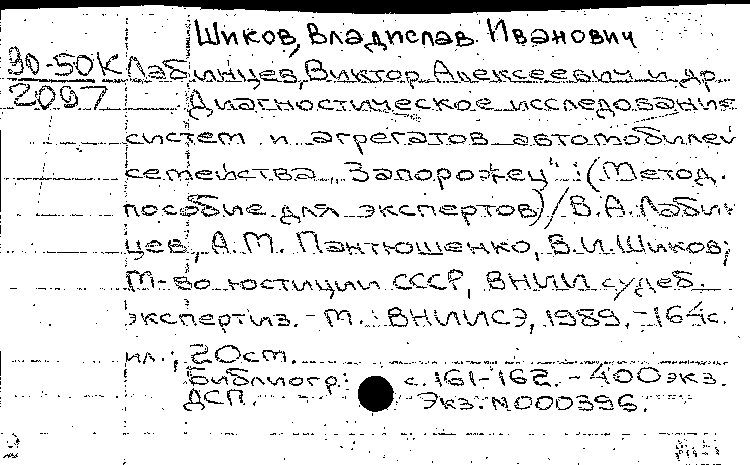 Шиков, Владислав Иванович
90-50К Лабинцев, Виктор Алексеевич и др.
2097 Диагностическое исследования
систем и агрегатов автомобилей
семейства „Запорожец“ : (Метод.
пособие для экспертов) / В.А. Лабин-
цев, А.М. Пантюшенко, В.И. Шиков;
М-во юстиции СССР, ВНИИ судеб.
экспертиз. - М. : ВНИИСЭ, 1989. - 164с.
ил.; 20см.
Библиогр.: с. 161-162. - 400экз.
ДСП. Экз. N000396.